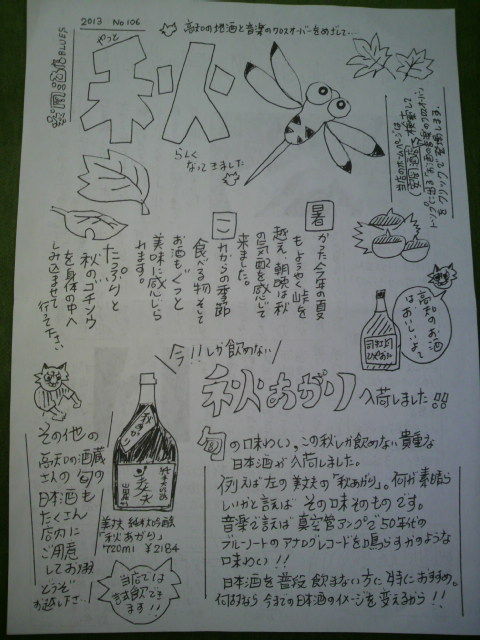 2013 No106
高知の地酒と音楽のクロスオーバーをめざして…
安岡酒店BLUES
やっと
秋
らしく
なってきました
当店のホームページは
安岡酒店 検索して
トップに出る「お酒の音楽のクロスオーバー」
をクリックで登場します。
暑
かった今年の夏
もようやく峠を
越え、朝晩は秋
の気配を感じて
来ました。
こ
れからの季節
食べる物、そして
お酒もぐっと
美味に感じら
れます。
たっぷりと
秋のゴチソウ
を身体の中へ
しみ込ませて
行って下さい
高知のお酒
はおいしいよって
司牡丹
ひやおろし
今!!しか飲めない
秋あがり 入荷しました!!
旬の味わい、この秋しか飲めない貴重な
日本酒が入荷しました。
例えば左の美丈夫の「秋あがり」。何が素晴ら
しいかと言えば その味そのものです。
音楽で言えば 真空管アンプで50年代の
ブルーノートのアナログレコードを鳴らすかのような
味わい!!
日本酒を普段飲まない方に特におすすめ。
何故なら今までの日本酒のイメージを変えるから!!
秋あがり
純米吟醸
美丈夫
美丈夫 純米吟醸
「秋あがり」
720ml ¥2184
当店では
試飲でき
ます!!
その他の
高知の酒蔵
さんの旬の
日本酒も
たくさん
店内に
ご用意
しており〼
どうぞ
お越し下さい…